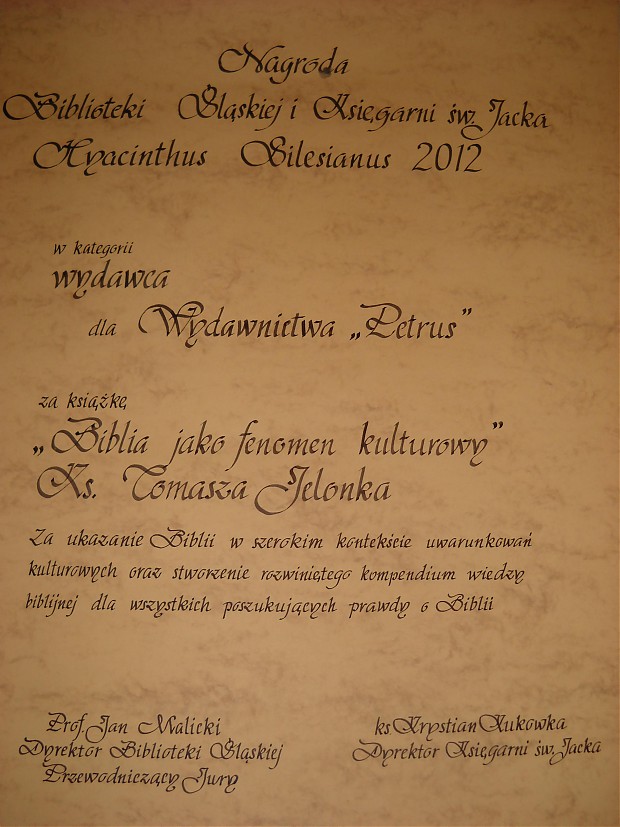 Nagroda
Biblioteki Śląskiej i Księgarni św. Jacka
Hyacinthus Silesianus 2012
w kategorii
wydawca
dla Wydawnictwa „Petrus”
za książkę
„Biblia jako fenomen kulturowy”
Ks. Tomasza Jelonka
Za ukazanie Biblii w szerokim kontekście uwarunkowań
kulturowych oraz stworzenie rozwiniętego kompendium wiedzy
biblijnej dla wszystkich poszukujących prawdy o Biblii
Prof. Jan Malicki
Dyrektor Biblioteki Śląskiej
Przewodniczący Jury
ks. Krystian Kukowka
Dyrektor Księgarni św. Jacka